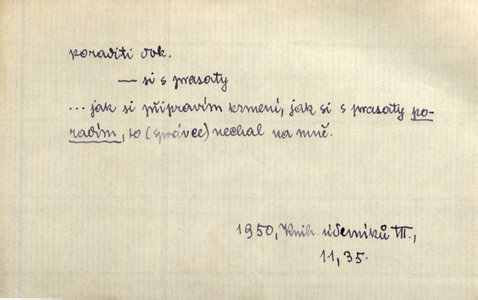 poraditi dok.
— si s prasaty
... jak si připravím krmení, jak si s prasaty po-
radím, to (správce) nechal na mně.
1950, Knih. úderníků III.,
11, 35.